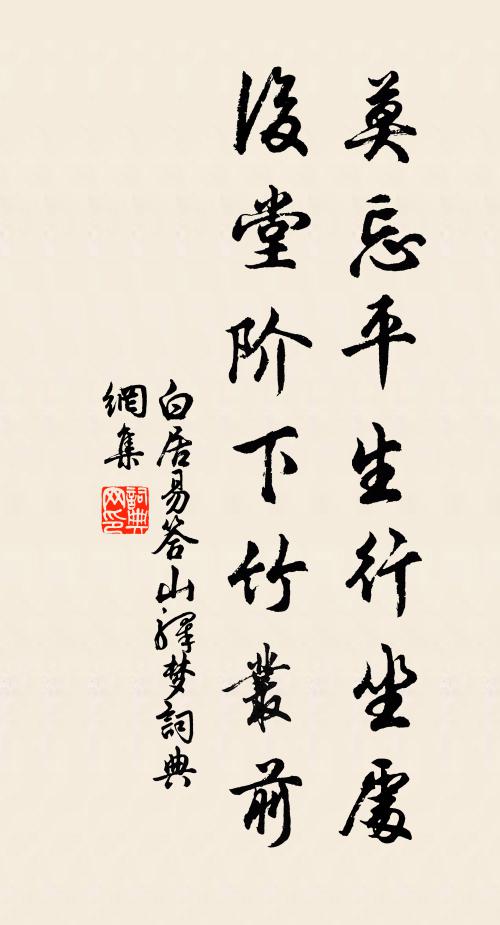 莫忘平生行坐處
後堂阶下竹叢前
白居易答山驛梦詞典
網集
詞典網印